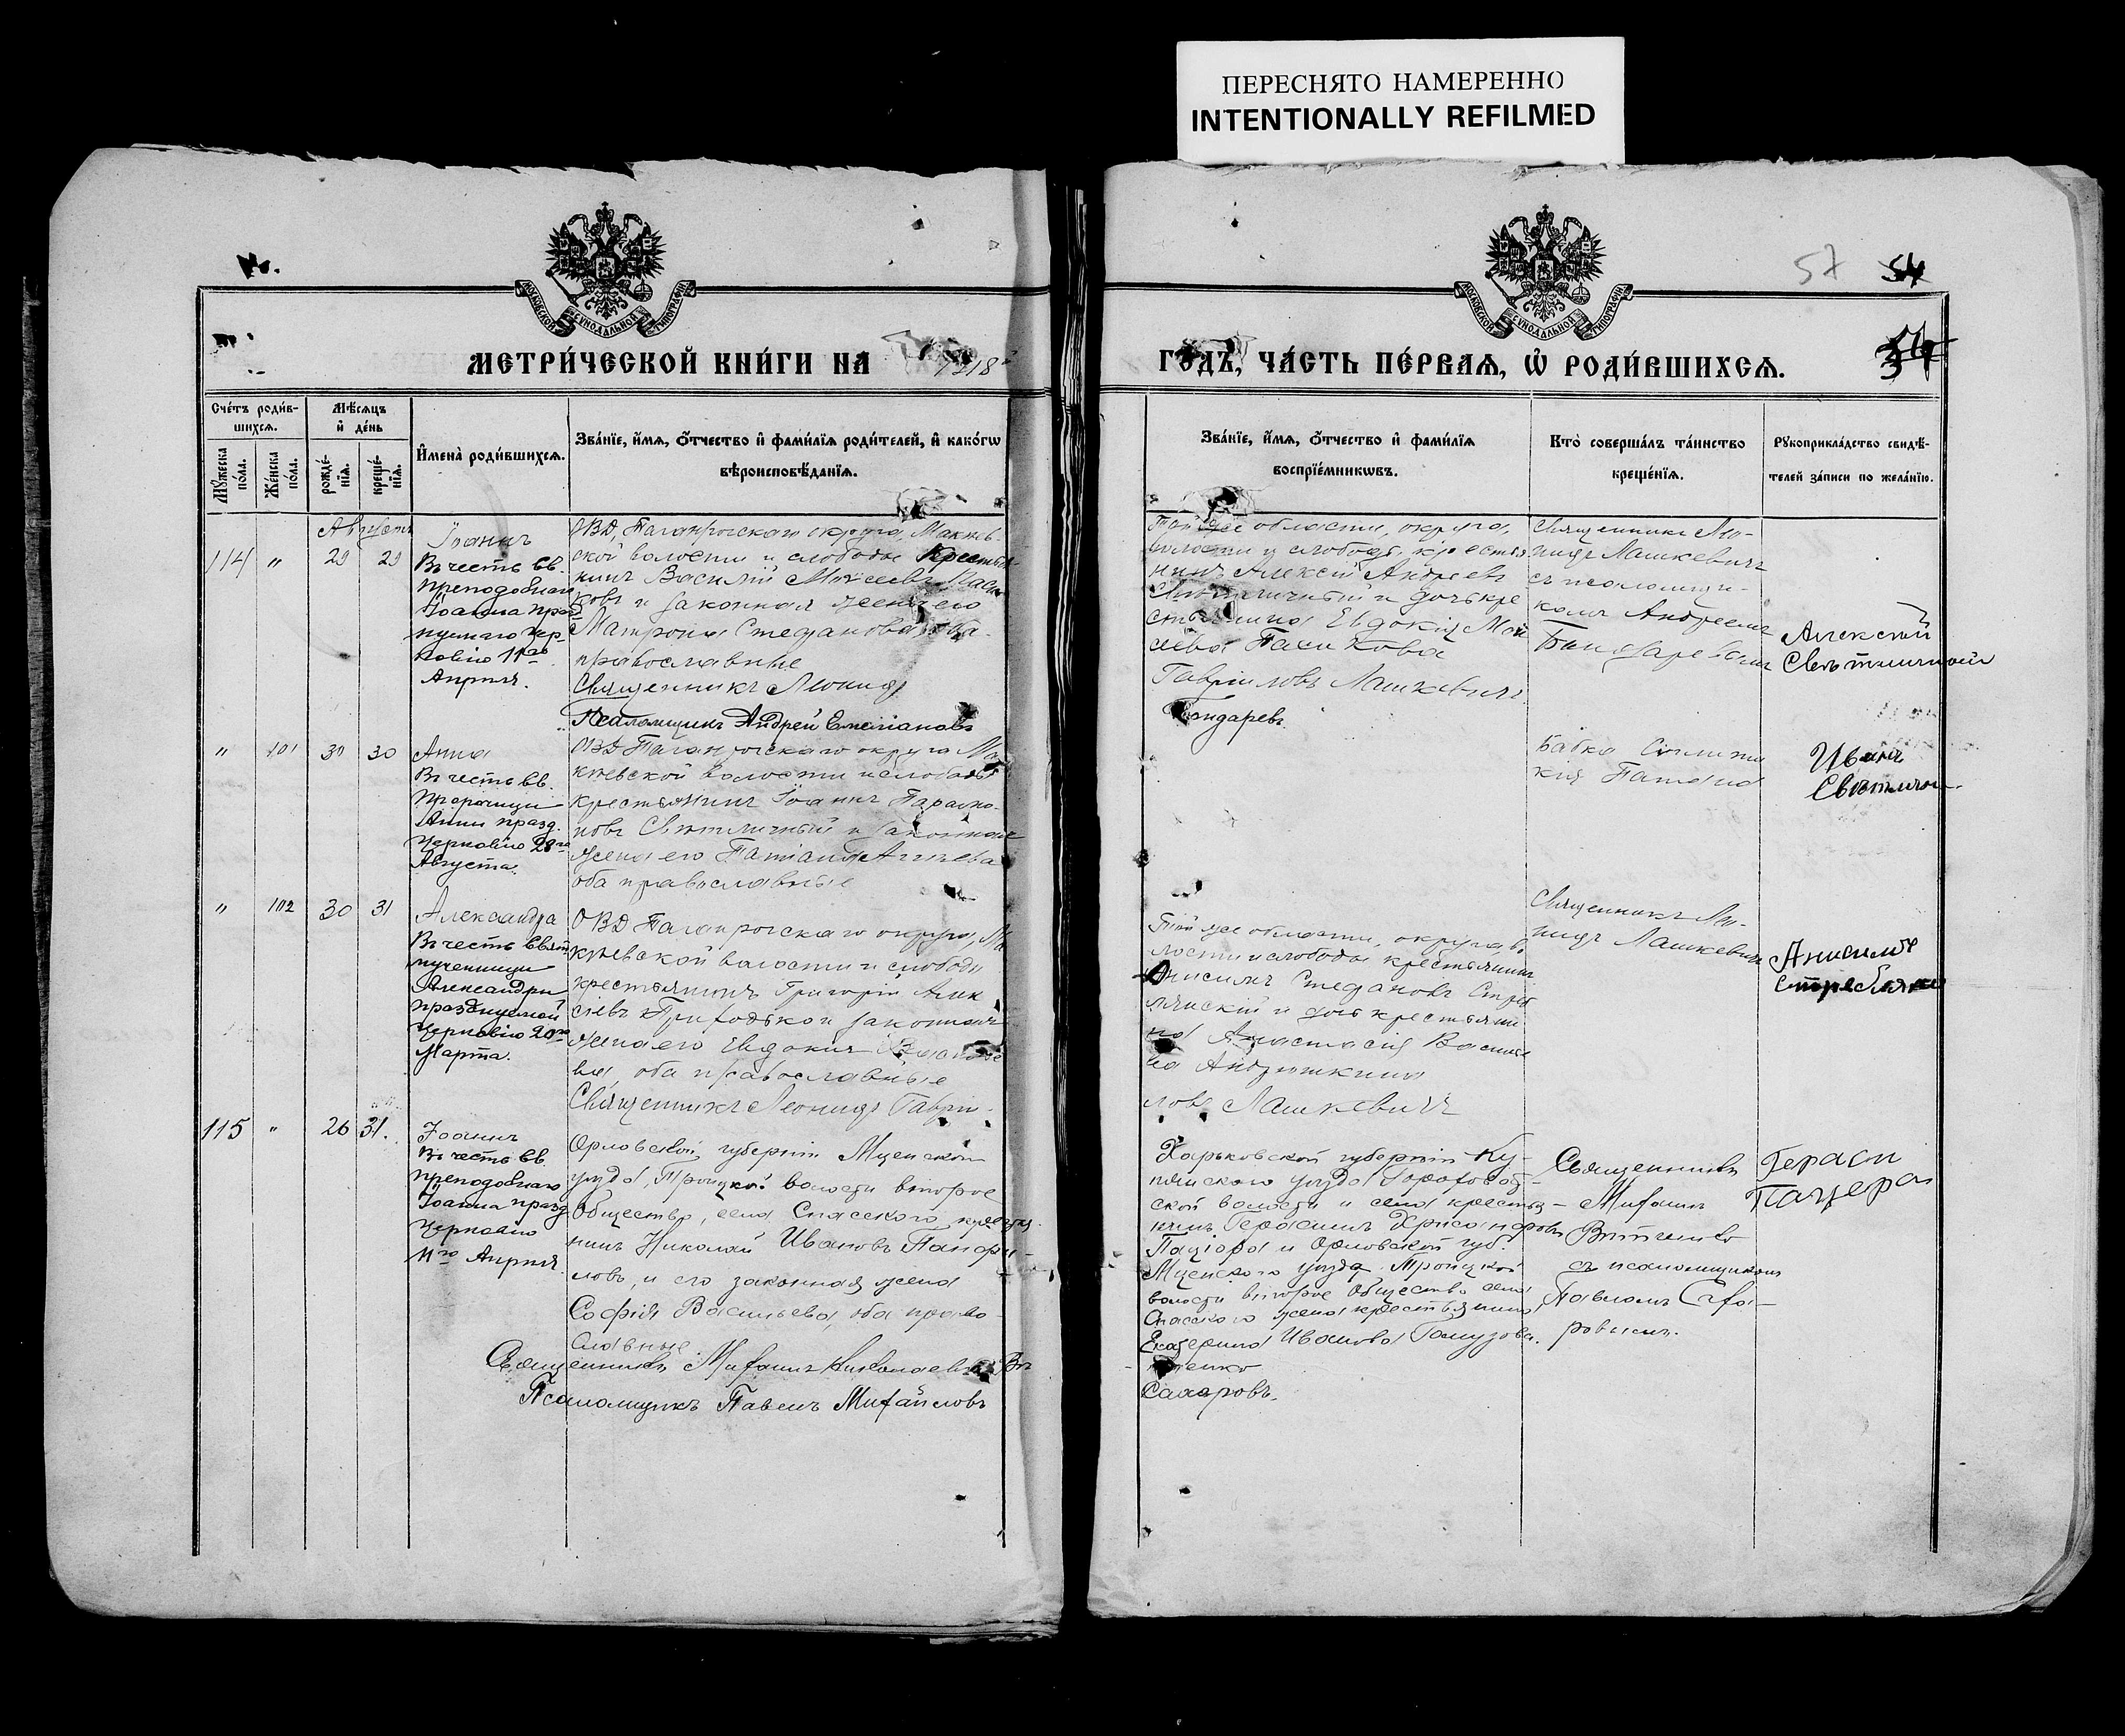 ПЕРЕСНЯТО НАМЕРЕННО
INTENTIONALLY REFILMED
57 54
МОСКОВСКОЙ СѴНОДАЛЬНОЙ ТИПОГРАФІИ
МОСКОВСКОЙ СѴНОДАЛЬНОЙ ТИПОГРАФІИ
МЕТРИ́ЧЕСКОЙ КНИ́ГИ НА 1918
ГО́ДЪ, ЧА́СТЬ ПЕ́РВАЯ, Ѡ҆ РОДИ́ВШИХСЯ.
54
Сче́тъ роди́в-
шихся.
Мꙋжеска по́ла.
Же́нска по́ла.
Мѣ́сяцъ
и҆ де́нь
рожде́-
нїя.
креще́-
нїя.
И҆мена̀ роди́вшихся.
Зва́нїе, и҆́мя, ѻ҆́тчество и҆ фами́лїя роди́телей, и҆ како́гѡ
вѣроисповѣ́данїя.
Зва́нїе, и҆́мя, ѻ҆́тчество и҆ фами́лїя
воспрїе́мникѡвъ.
Кто̀ соверша́лъ та́инство
креще́нїя.
Рꙋкоприкла́дство свидѣ́-
телей за́писи по жела́нїю.
Августъ
114 " 29 29
Іоаннъ
Въ честь св.
преподобнаго
Іоанна праз
нуемаго чер-
ковію 11го
Апрѣля.
ОВД, Таганрогскаго округа, Макѣев-
ской волости и слободы крестья-
нинъ Василій Моисеевъ Паси
ковъ и законная жена его
Матрона Стефанова, оба
православные
Священникъ Леонидъ
Псаломщикъ Андрей Емеліановъ
Той же области, округа,
волости и слободы, крестья
нинъ Алексѣй Андреевъ
Свѣтличный и дочь кре
стьянина Евдокія Мои
сеева Пасикова
Гавріиловъ Лашкевичъ
Бондаревъ.
Священникъ Лео-
нидъ Лашкевичъ
съ псаломщи-
комъ Андреемъ
Бондаревымъ
Алексей
Светличный
" 101 30 30
Анна
Въ честь св.
Пророчицы
Анны празд.
Церковію 28го
Августа.
ОВД Таганрогскаго округа Ма
кѣевской волости и слободы
крестьянинъ Іоаннъ
новъ Свѣтличный и законная
жена его Татіана
оба православные
Бабка
Иванъ
" 102 30 31
Александра
Въ честь свят.
мученицы
Александры
празднуемой
Церковію 20го
Марта.
ОВД Таганрогскаго округа, Ма
кѣевской волости и слободы
крестьянинъ Григорій Алек
сѣевъ Приходько и законная
жена его Евдокія
ва, оба православные
Священникъ Леонидъ Гаври-
Той же области, округа во
лости и слободы крестьянинъ
Анисимъ Стефановъ
и дочь крестьяни
на Анастасія Василь
ева Андрюшкина
ловъ Лашкевичъ
Священникъ Лео-
нидъ Лашкевичъ
Анисимъ
115 " 26 31.
Іоаннъ
Въ честь св.
преподобнаго
Іоанна празд
Церковію
11го Апрѣля.
Орловской губерніи Мценскаго
уѣзда, Троицкой волости второе
Общество, села Спасскаго, крестья-
нинъ Николай Ивановъ Панфи-
ловъ, и его законная жена
Софія Васильева, оба право-
славные.
Священникъ Михаилъ Николаевичъ Вит
Псаломщикъ Павелъ Михайловъ
Харьковской губерніи Ку-
пянского уѣзда
ской волости и села крестья-
нинъ Герасимъ Хрисанфовъ
Пацюра и Орловской губ.
Мценского уѣзда Троицкой
волости второе Общество села
Спасского жена крестьянина
Екатерина Иванова
ченко
Сахаровъ.
Священникъ
Михаилъ
Витченко
съ псаломщикомъ
Павломъ Саха-
ровымъ.
Гераси
Пацера